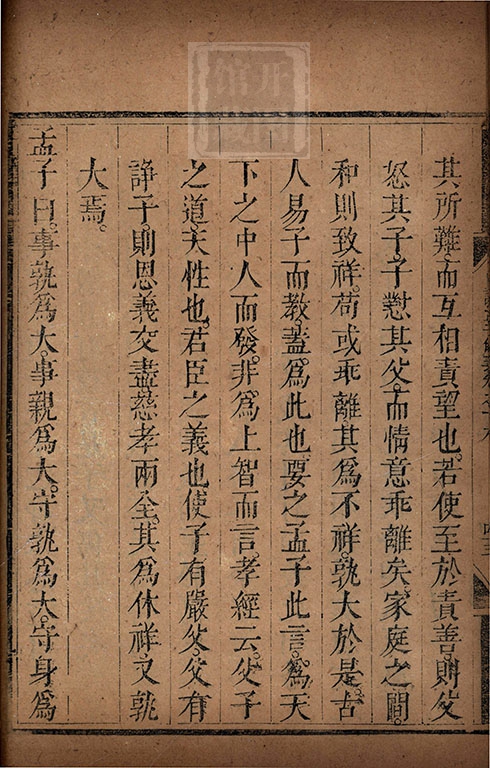 其所難而互相責望也若使至於責善則父
怒其子子懟其父而情意乖離矣家庭之間
和則致祥苟或乖離其爲不祥孰大於是古
人易子而教蓋爲此也要之孟子此言爲天
下之中人而發非爲上智而言孝經云父子
之道天性也君臣之義也使子有嚴父父有
諍子則恩義交盡慈孝兩全其爲休祥又孰
大焉
孟子曰事孰爲大事親爲大守孰爲大守身爲